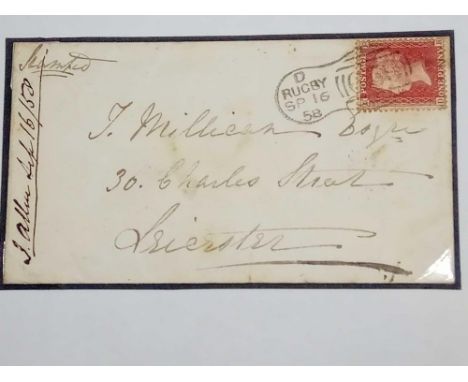 Stamped
J. Allen Sep. 16/58
D
RUGBY
SP 16
58
POSTAGE
ONE PENNY
T. Millican Esqre
30. Charles Street
Leicester